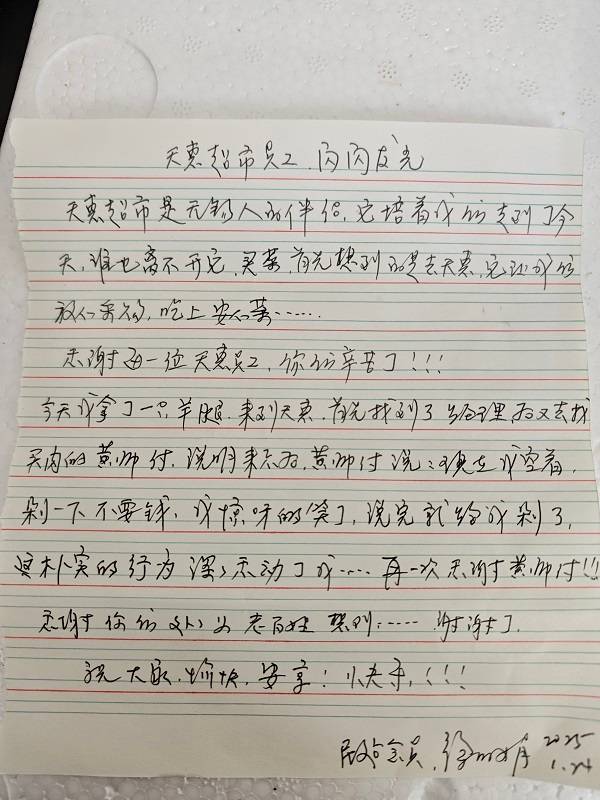 天惠超市员工、闪闪发光
天惠超市是无锡人的伴侣,它培着我们走到了今
天,谁也离不开它,买菜,首先想到的是去天惠,它让我们
放心采购,吃上安心菜……
感谢每一位天惠员工,你们辛苦了!!!
今天我拿了一只羊腿,来到天惠,首先找到了经理 后又去找
买肉的黄师付,说明来意后,黄师付说:现在我空着,
剁一下不要钱,我惊呀的笑了,说完就给我剁了,
真朴实的行为深深感动了我…… 再一次感谢黄师付!!!
感谢你们处处为老百姓想到…… 谢谢了。
祝大家、愉快、安享!小夫子,!!!
会员、徐 2025
1.24